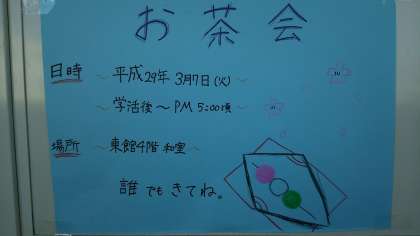 お茶会
日時 ～平成29年 3月7日(火)～
～学活後～PM 5:00頃～
場所 ～東館4階 和室～
誰でもきてね。